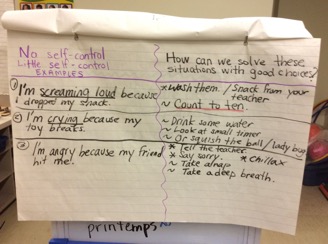 No self-control
Little self-control
EXAMPLES
How can we solve these
situations with good choices?
① I'm screaming loud because
I dropped my snack.
* Wash them. / Snack from your
teacher
~ Count to ten.
② I'm crying because my
toy breaks.
~ Drink some water
~ Look at small timer
~ Or squish the ball / lady bug
③ I'm angry because my friend
hit me!
* Tell the teacher.
* Say sorry. * Chillax
~ Take a nap
~ Take a deep breath.
printemps